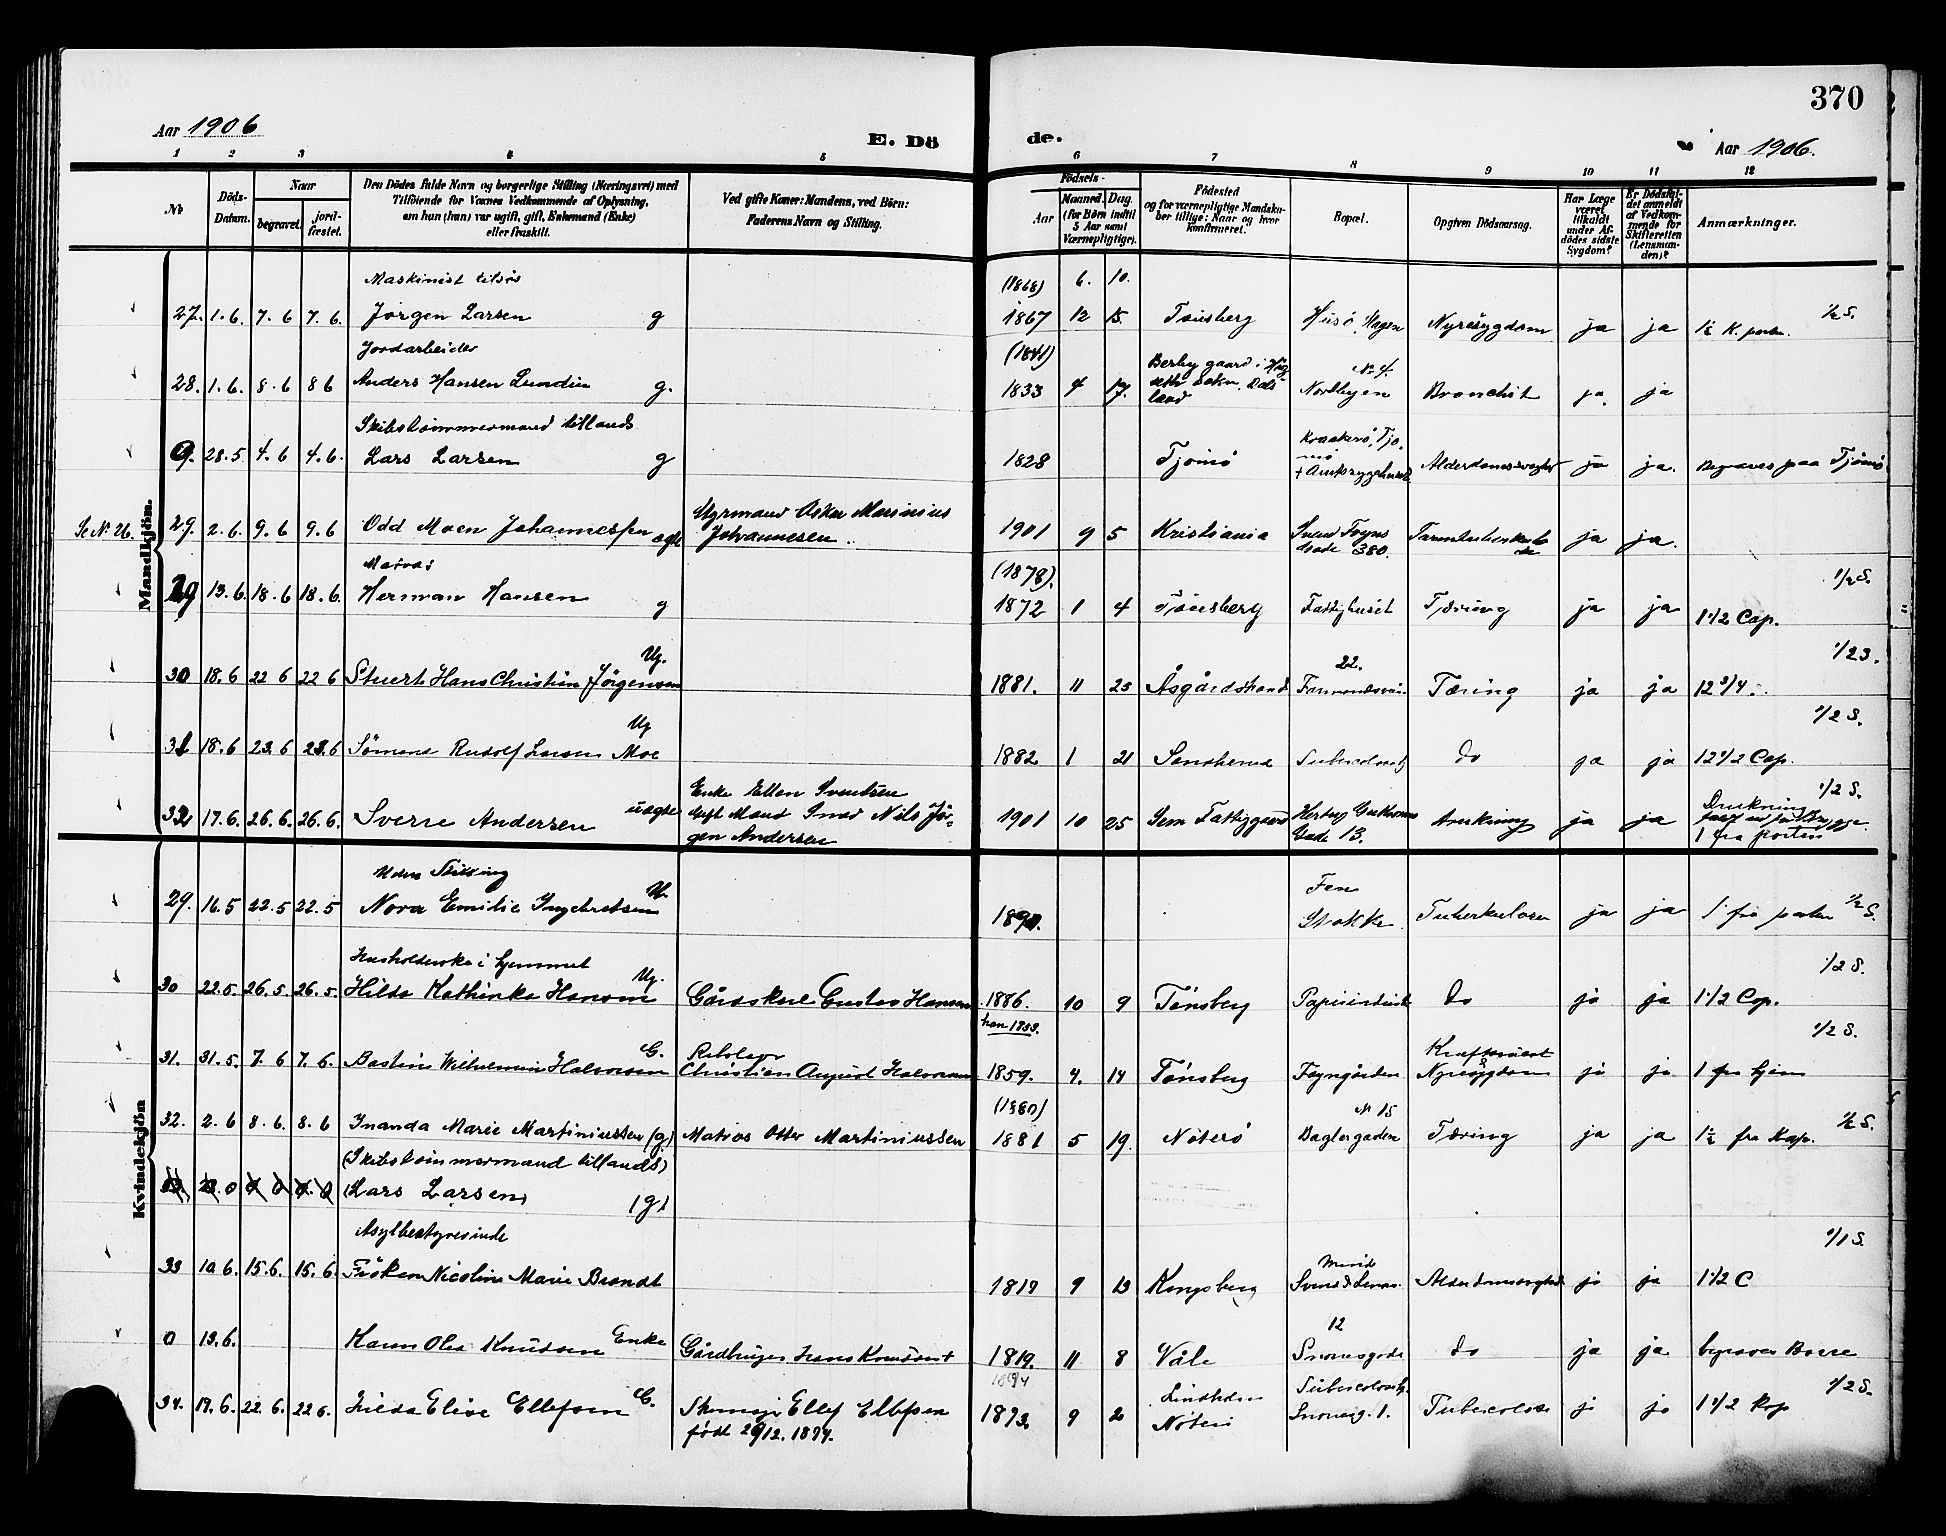 370
Aar 1906
E. Dö
de.
Aar 1906.
1 2 3 4 5 6 7 8 9 10 11 12
No
Döds-
Datum.
Naar
begravet.
jord-
fæstet.
Den Dödes fulde Navn og borgerlige Stilling (Næringsvei) med
Tilföiende for Voxnes Vedkommende af Oplysning,
om han (hun) var ugift, gift, Enkemand (Enke)
eller fraskilt.
Ved gifte Koner: Mandens, ved Börn:
Faderens Navn og Stilling.
Födsels-
Aar
Maaned. Dag.
(for Börn indtil
5 Aar samt
Værnepligtige).
Födested
og for værnepligtige Mandska-
ber tillige: Naar og hvor
konfirmeret.
Bopæl.
Opgiven Dödsaarsag.
Har Læge
været
tilkaldt
under Af-
dödes sidste
Sygdom?
Er Dödsfal-
det anmeldt
af Vedkom-
mende for
Skifteretten
(Lensman-
den)?
Anmærkninger.
Mandkjön.
Maskinist tilsös (1868) 6. 10.
27. 1.6. 7.6 7.6. Jørgen Larsen g 1867 12 15. Tønsberg Husö, Slagen Nyresygdom ja ja 1½ K. porten. ½ S.
Jordarbeider (1841)
28. 1.6. 8.6 8 6 Anders Hansen Lundin g. 1833 4 17. Berby gaard i Dals-
land No 4. Nordbyen Bronchit ja ja
Skibstømmermand tillands
0. 28.5. 4.6 4.6. Lars Larsen g 1828 Tjømø Tjø-
mø + Amtssygehuset Alderdomssvaghed ja ja. Begraves paa Tjømø
Se No 26. 29. 2.6. 9.6 9.6 Odd Moen Johannessen ægte Styrmand Oskar Marinius
Johannesen. 1901 9 5 Kristiania Svend Foyns
Gade 380. Tarmtuberkulo
se ja ja.
Matros (1878).
29 13.6. 18.6 18.6. Herman Hansen g 1872 1 4 Tönsberg Fattighuset Tæring ja ja 1 1/2 Cap. 1/2 S.
30 18.6 22 6 22 6 Stuert Hans Christian Jörgensen Ug. 1881. 11 25 Åsgårdstrand 22. Tæring ja ja 12 3/4 1/2 S.
31 18.6 23.6 23.6 Sömand Rudolf Larsen Moe Ug 1882 1 21 Sandherred Do ja ja 12 1/2 Cap. 1/2 S.
32 17.6. 26.6. 26.6. Sverre Andersen uægte Enke Ellen Svendsen
Gift Mand Smed Nils Jör-
gen Andersen 1901 10 25 Sem Fattiggaard Hertug Guthorms
Gade 13. Drukning ja ja Drukning
1 fra porten 1/2 S.
Kvindekjön
Uden Stilling
29. 16.5 22.5 22.5 Nora Emilie Ingebretsen U. Fen
Stokke Tuberkulose ja ja 1 fra porten ½ S.
Husholderske i hjemmet
30 22.5. 26.5. 26.5. Hilda Kathinka Hansen Ug. Gårdskarl Gustav Hansen 1886. 10 9 Tönsberg Do ja ja 1 1/2 Cop. 1/2 S.
31. 31.5. 7.6 7.6. Bastine Wilhelmine Halvorsen G. Christian August Halvorsen han 1853.
1859. 4. 14 Tönsberg Foyngården Nyresygdom ja ja 1 fra hjem 1/2 S.
32. 2.6 8.6. 8.6 Inanda Marie Martiniussen (g) Matros Otto Martiniussen (1880)
1881 5 19. Nøterø No 15
Baglergaden Tæring ja ja 1½ fra Kap. ½ S.
(Skibstømmermand tillands)
(Lars Larsen) (g)
Asylbestyrerinde
33 10.6. 15.6. 15.6. Fröken Nicoline Marie Brandt 1819 9 13 Kongsberg Alderdomssvaghed ja ja 1 1/2 C 1/1 S.
0 13.6. Karen Olea Knudsen Enke Gårdbruger Hans Knudsen + 1819. 11 8 Våle 12
Do ja ja begraves Borre
34. 19.6. 22.6. 22 6. Hilda Elise Ellefsen G. Ellef Ellefsen
född 29/12. 1874. 1874
1873. 9 2 Nöterö Tuberculose ja ja 1 1/2 Kap 1/2 S.